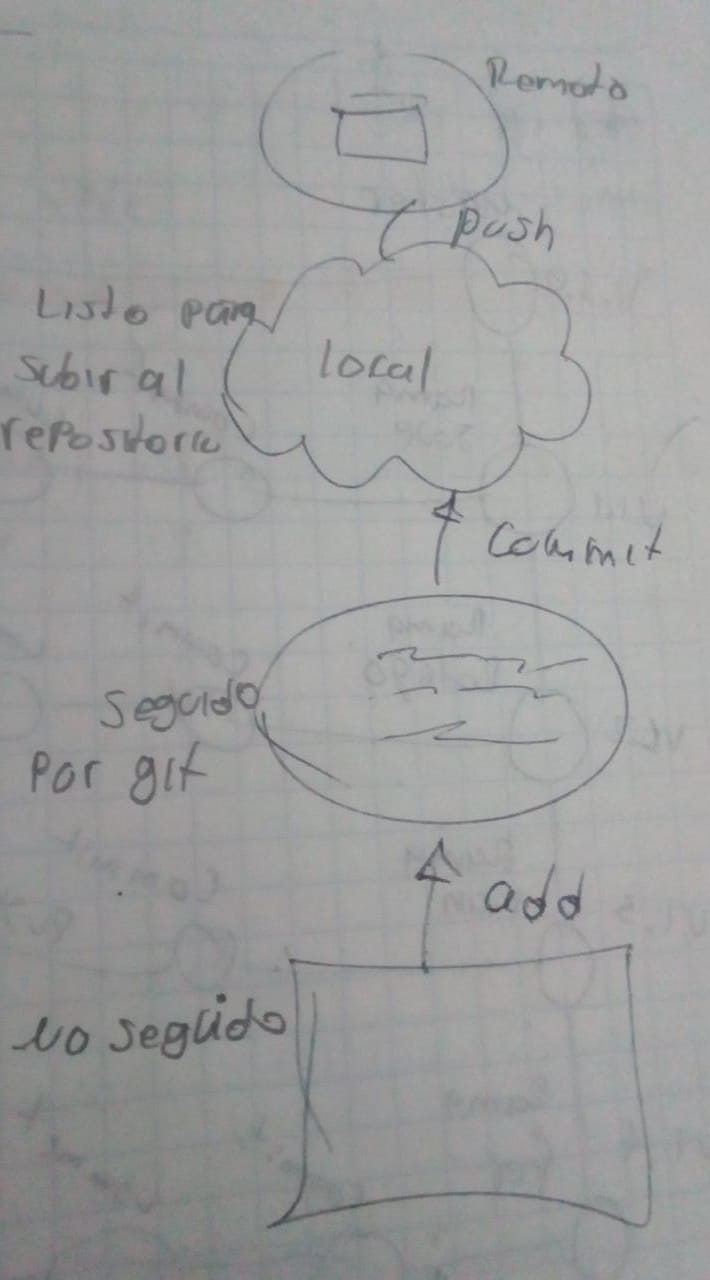 Remoto
push
Listo para
subir al
repositorio
local
Commit
Seguido
Por git
add
No seguido